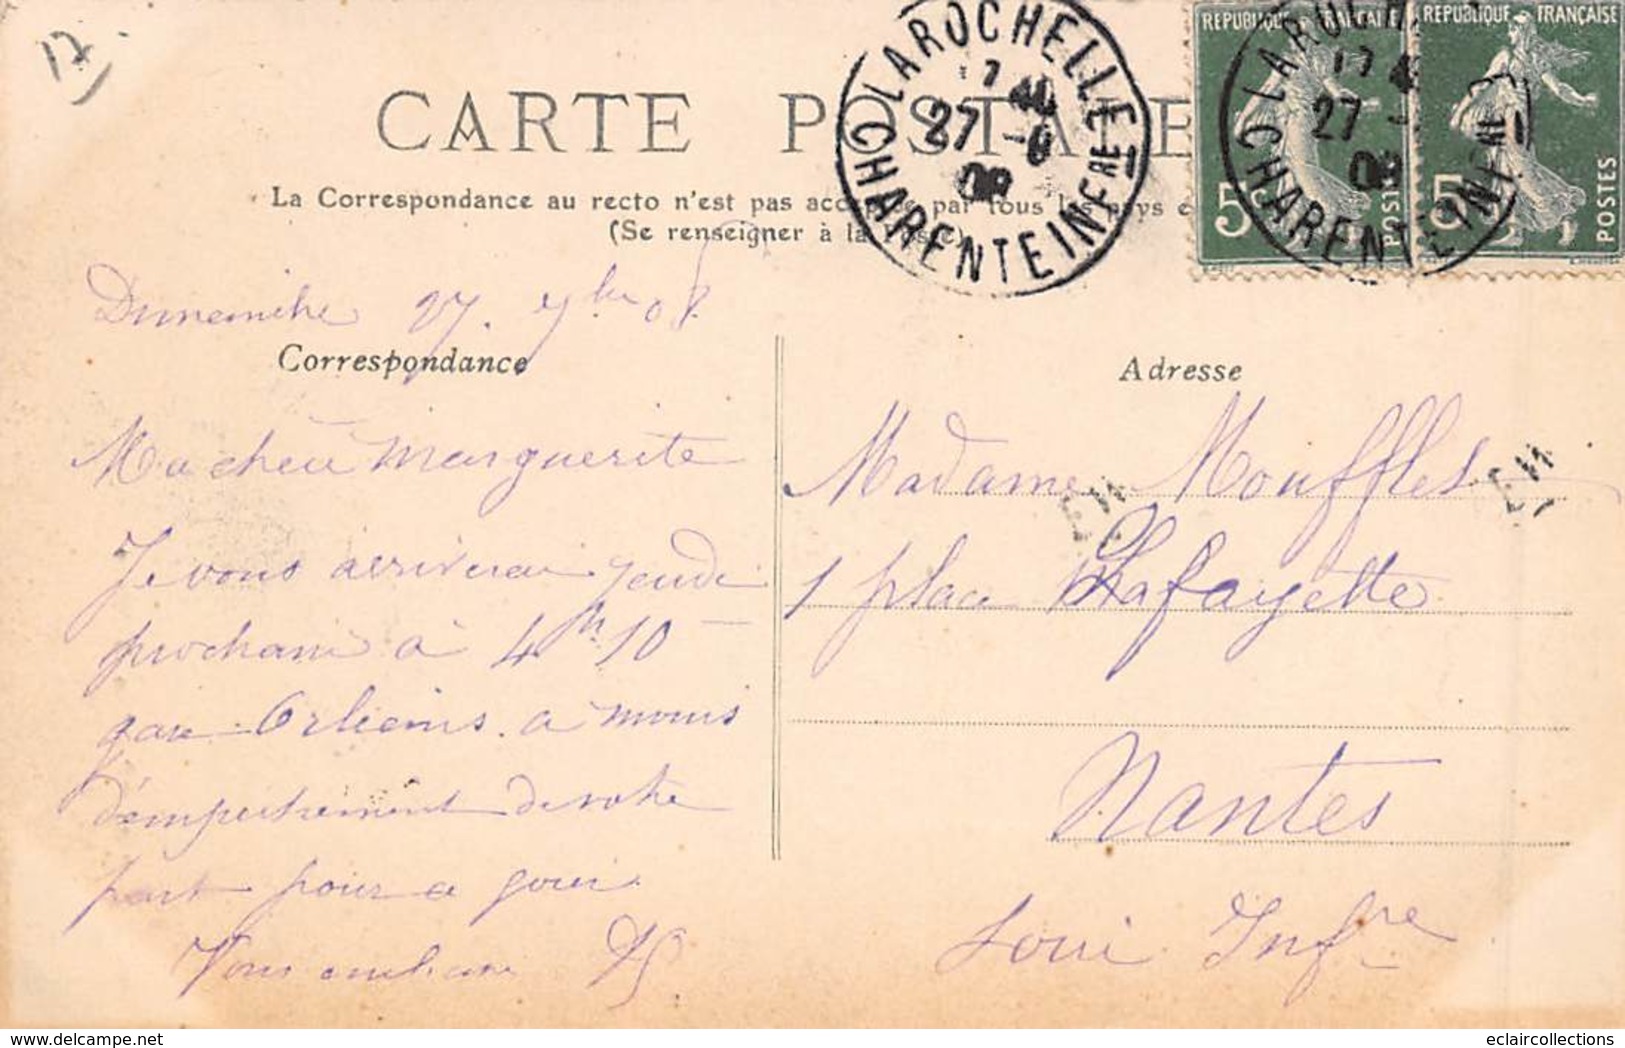 17
CARTE POSTALE
La Correspondance au recto n'est pas acceptée par tous les pays
(Se renseigner à la Poste)
LA ROCHELLE
17 40
27 -9
08
CHARENTE INFRE
REPUBLIQUE FRANÇAISE
5c
POSTES
REPUBLIQUE FRANÇAISE
5c
POSTES
LA ROCHELLE
27
CHARENTE INF
Dimanche 27. 9bre 08
Correspondance
Ma chère Marguerite
Je vous arriverai jeudi
prochain à 4h 10
gare Orléans. a moins
d'empechement de votre
part pour ce jour.
Vous embrasse
Adresse
Madame Moufflet
1 place Lafayette
Nantes
Loire Infre
EM
EM
eclaircollections